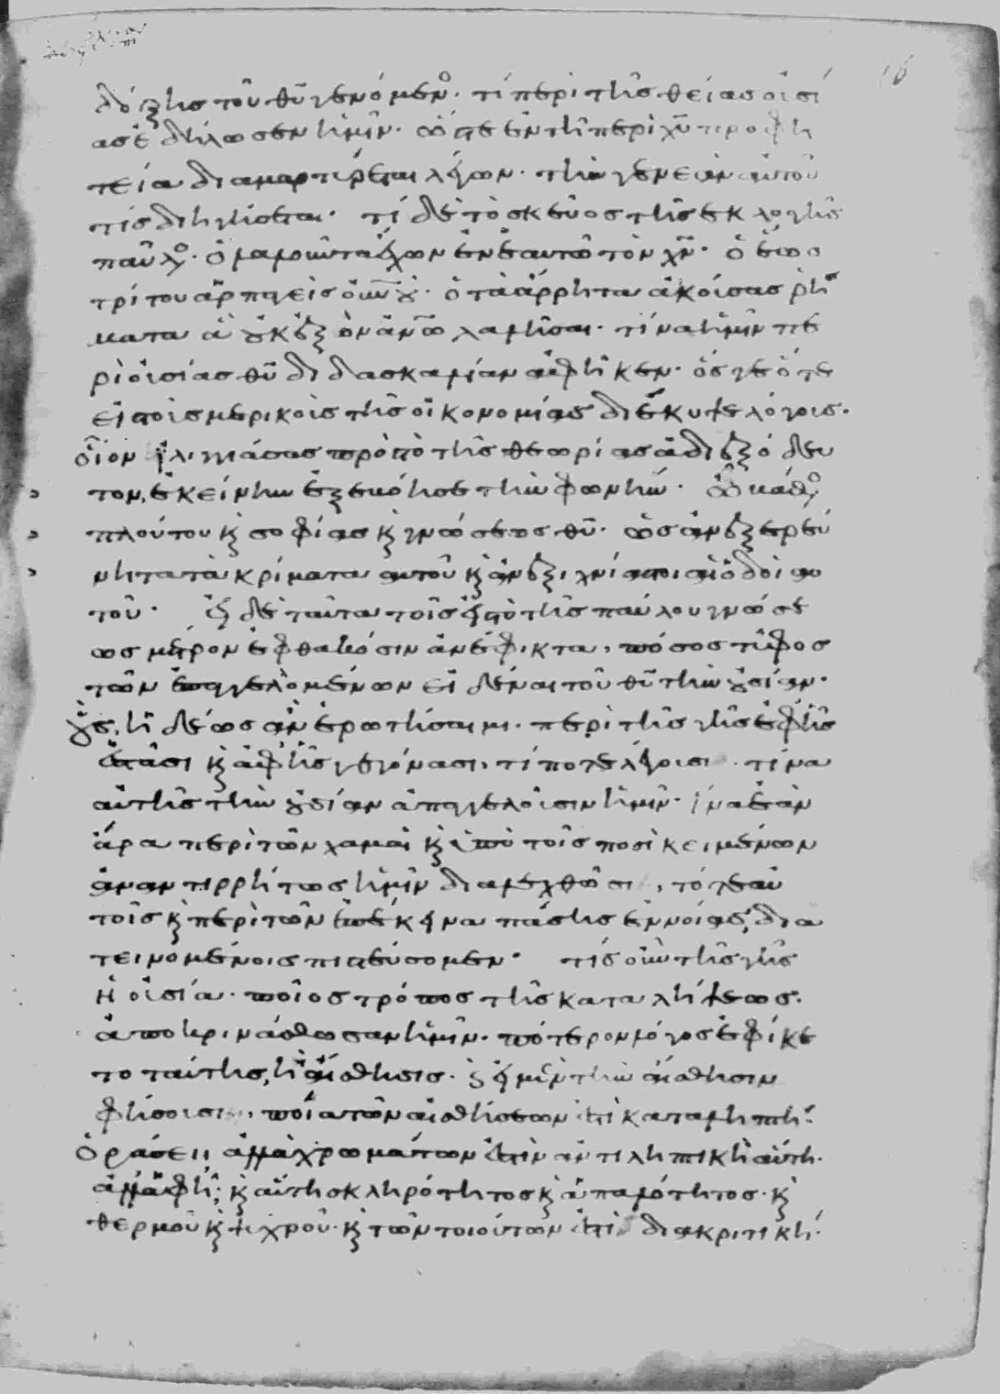 δόξης τοῦ θῦ γενόμεν̊. τί περὶ τῆς θείας οὐσί
ας ἐδήλωσεν ἡμῖν. ὥστε ἐν τῆ περὶ χῦ προφη
τεία διαμαρτύρεται λέγων. τὴν γενεὰν αὐτοῦ
τίς διηγήσεται. τί δὲ τὸ σκεῦος τῆς ἐκλογῆς
παῦλ̊. ὁ λαλοῦντα ἔχων ἐν ἑαυτῶ τὸν χν̄. ὁ ἕως
τρίτου ἁρπαγεὶς οὐνοῦ. ὁ τὰ ἄρρητα ἀκούσας ῥή
ματα ἃ οὐκ ἐξὸν ἀνω̄ λαλῆσαι. τίνα ἡμῖν πε
ρὶ οὐσίας θῦ διδασκαλίαν ἀφῆκεν. ὅς γε ὅτε
εἰς τοὺς μερικοὺς τῆς οἰκονομίας διέκυψε λόγους.
οἷον ἰλιγγιάσας πρὸς τὸ τῆς θεωρίας ἀδιεξόδευ
τον, ἐκείνην ἐξεβόησε τὴν φωνήν. ὦ βάθ̊
πλούτου κ̀ σοφίας κ̀ γνώσεως θῦ. ὡς ἀνεξερεύ
νητα τὰ κρίματα αὐτοῦ κ̀ ἀνεξιχνίαστοι αἱ ὁδοὶ αὐ
τοῦ. εἰ δὲ ταῦτα τοῖς εἰς τὸ τῆς παύλου γνώσε
ως μέτρον ἐφθακόσιν ἀνέφικτα, πόσος τῦφος
τῶν ἐπαγγελομένων εἰδέναι τοῦ θῦ τὴν οὐσίαν.
οὓς ἡδέως ἂν ἐρωτήσαιμι. περὶ τῆς γῆς ἐφ' ἧς
ἑστᾶσι κ̀ ἀφ' ἧς γεγόνασι, τί ποτε λέγουσι. τίνα
αὐτῆς τὴν οὐσίαν ἀπαγγελοῦσιν ἡμῖν. ἵνα ἐὰν
ἄρα περὶ τῶν χαμαὶ κ̀ ὑπὸ τοῖς ποσὶ κειμένων
ἀναντιρρήτως ἡμῖν διαλεχθῶσι, τότε αὐ
τοῖς κ̀ περὶ τῶν ἐπέκεινα πάσης ἐννοίας, δια
τεινομένοις πιστεύσομεν. τίς οὖν τῆς γῆς
ἡ οὐσία. ποῖος τρόπος τῆς καταλήψεως.
ἀποκρινάσθωσαν ἡμῖν. πότερον λόγος ἐφίκε
το ταύτης, ἢ αἴσθησις. εἰ μὲν τὴν αἴσθησιν
φήσουσι, ποία τῶν αἰσθήσεών ἐστι καταληπτή.
ὁράσει, ἀλλὰ χρωμάτων ἐστὶν ἀντιληπτικὴ αὕτη.
ἀλλ' ἁφῆ; κ̀ αὕτη σκληρότητος κ̀ ἁπαλότητος. κ̀
θερμοῦ κ̀ ψυχροῦ. κ̀ τῶν τοιούτων ἐστὶ διακριτική.